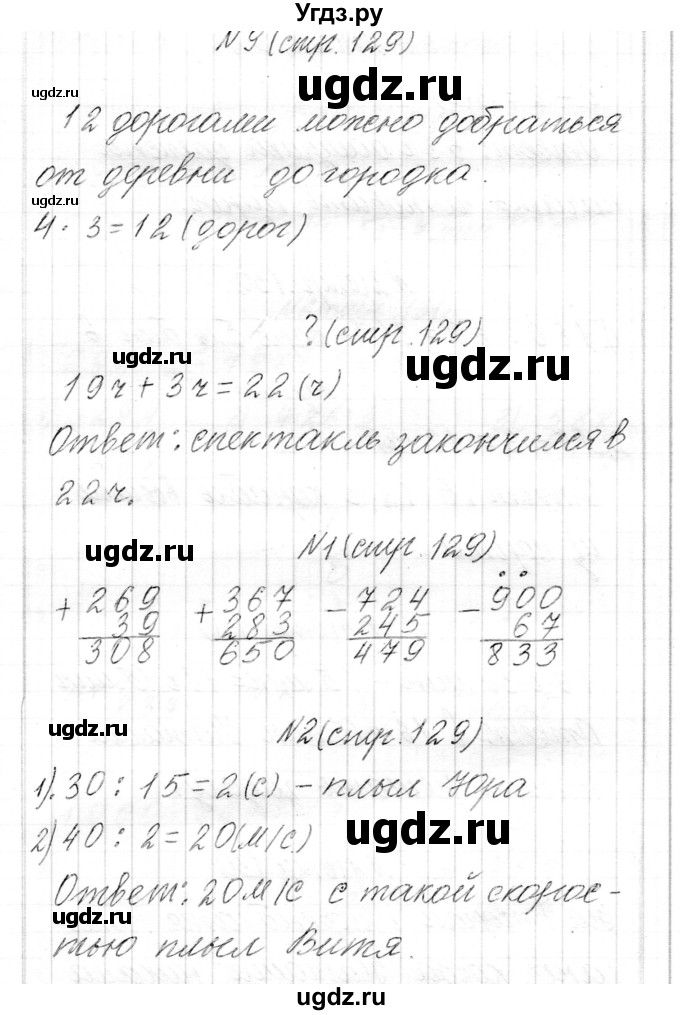 Угдз.ру
N9 (стр. 129)
ugdz.ru
ugdz.ru
12 дорогами можно добраться
от деревни до городка.
ugdz.ru
4 · 3 = 12 (дорог)
? (стр. 129)
ugdz.ru
ugdz.ru
19ч + 3ч = 22 (ч)
Ответ: спектакль закончился в
22ч.
N1 (стр. 129)
ugdz.ru
+ 269 + 367 - 724 - 900
39 283 245 67
308 650 479 833
ugdz.ru
N2 (стр. 129)
1). 30 : 15 = 2 (с) - плыл Юра
2) 40 : 2 = 20 (м/с)
ugdz.ru
Ответ: 20 м/с с такой скорос-
ugdz.ru
тью плыл Витя.
ugdz.ru